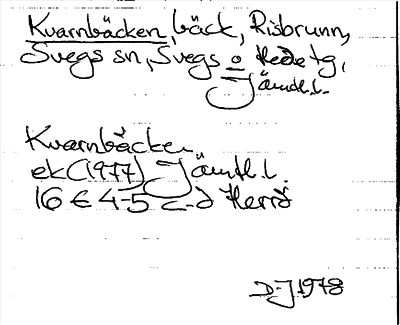 Kvarnbäcken, bäck, Risbrunn,
Svegs sn, Svegs o Hede tg,
Jämtl.l.
Kvarnbäcken
ek (1977) Jämtl.l.
16 E 4-5 c-d Herrö
D-J 1978